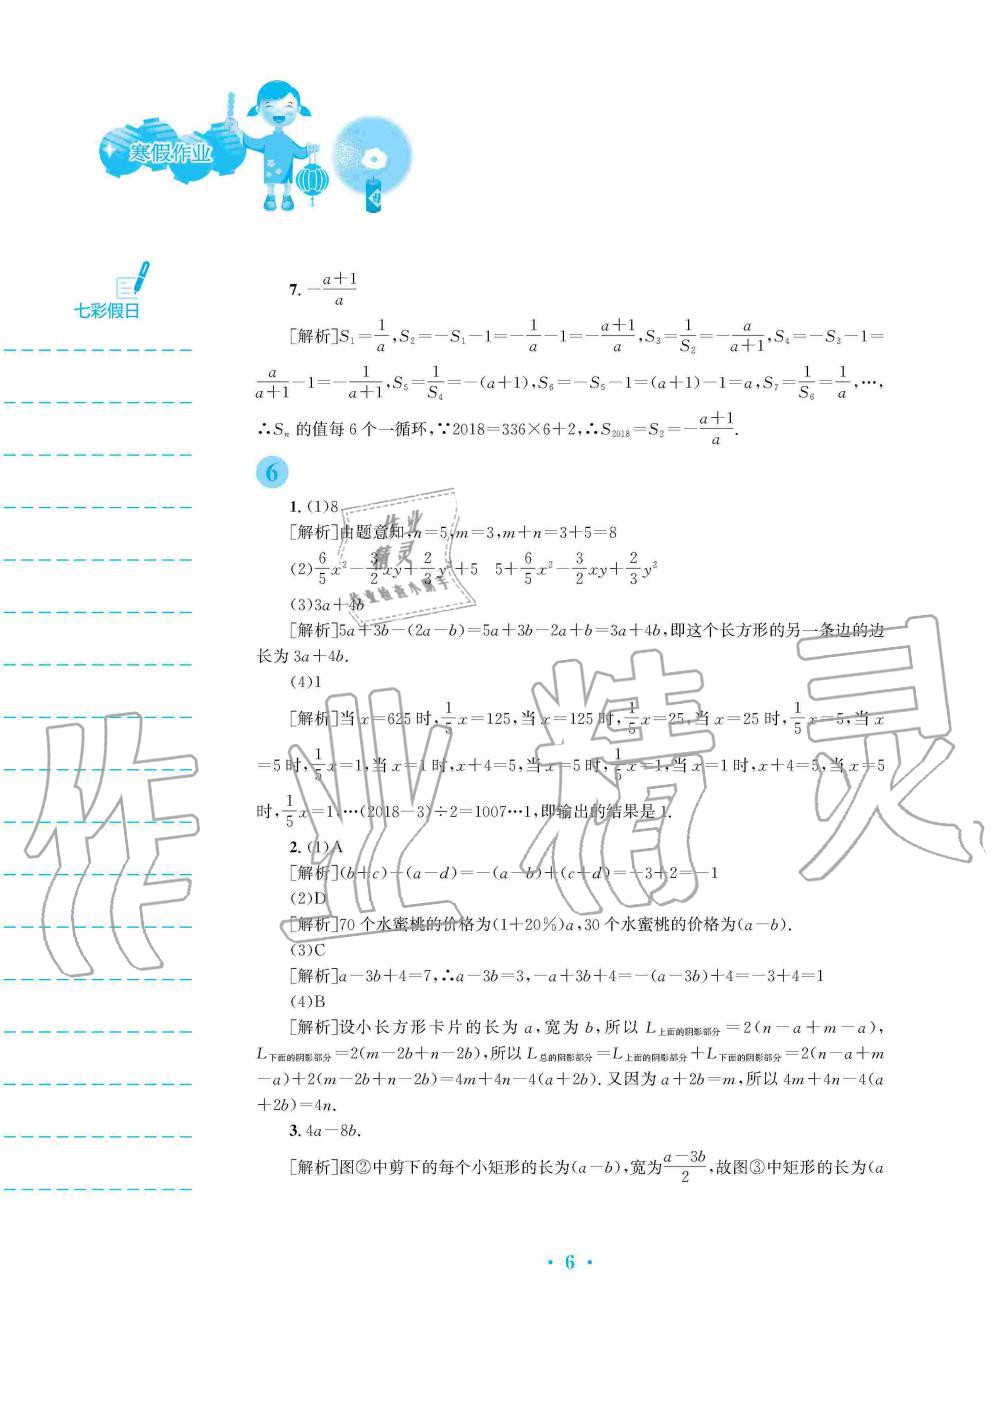 寒假作业
七彩假日
7. -\frac{a+1}{a}
[解析]S₁=\frac{1}{a},S₂=-S₁-1=-\frac{1}{a}-1=-\frac{a+1}{a},S₃=\frac{1}{S₂}=-\frac{a}{a+1},S₄=-S₃-1=
\frac{a}{a+1}-1=-\frac{1}{a+1},S₅=\frac{1}{S₄}=-(a+1),S₆=-S₅-1=(a+1)-1=a,S₇=\frac{1}{S₆}=\frac{1}{a},…,
∴Sₙ 的值每 6 个一循环,∵2018=336×6+2,∴S₂₀₁₈=S₂=-\frac{a+1}{a}.
6
1. (1)8
[解析]由题意知,n=5,m=3,m+n=3+5=8
(2)\frac{6}{5}x²-\frac{3}{2}xy+\frac{2}{3}y²+5 5+\frac{6}{5}x²-\frac{3}{2}xy+\frac{2}{3}y²
(3)3a+4b
[解析]5a+3b-(2a-b)=5a+3b-2a+b=3a+4b,即这个长方形的另一条边的边
长为 3a+4b.
(4)1
[解析]当 x=625 时,\frac{1}{5}x=125,当 x=125 时,\frac{1}{5}x=25,当 x=25 时,\frac{1}{5}x=5,当 x
=5 时,\frac{1}{5}x=1,当 x=1 时,x+4=5,当 x=5 时,\frac{1}{5}x=1,当 x=1 时,x+4=5,当 x=5
时,\frac{1}{5}x=1,…(2018-3)÷2=1007…1,即输出的结果是 1.
2. (1)A
[解析](b+c)-(a-d)=-(a-b)+(c+d)=-3+2=-1
(2)D
[解析]70 个水蜜桃的价格为(1+20%)a,30 个水蜜桃的价格为(a-b).
(3)C
[解析]a-3b+4=7,∴a-3b=3,-a+3b+4=-(a-3b)+4=-3+4=1
(4)B
[解析]设小长方形卡片的长为 a,宽为 b,所以 L上面的阴影部分=2(n-a+m-a),
L下面的阴影部分=2(m-2b+n-2b),所以 L总的阴影部分=L上面的阴影部分+L下面的阴影部分=2(n-a+m
-a)+2(m-2b+n-2b)=4m+4n-4(a+2b). 又因为 a+2b=m,所以 4m+4n-4(a
+2b)=4n.
3. 4a-8b.
[解析]图②中剪下的每个小矩形的长为(a-b),宽为\frac{a-3b}{2},故图③中矩形的长为(a
• 6 •
作业精灵
作业
精灵
作业检查小助手